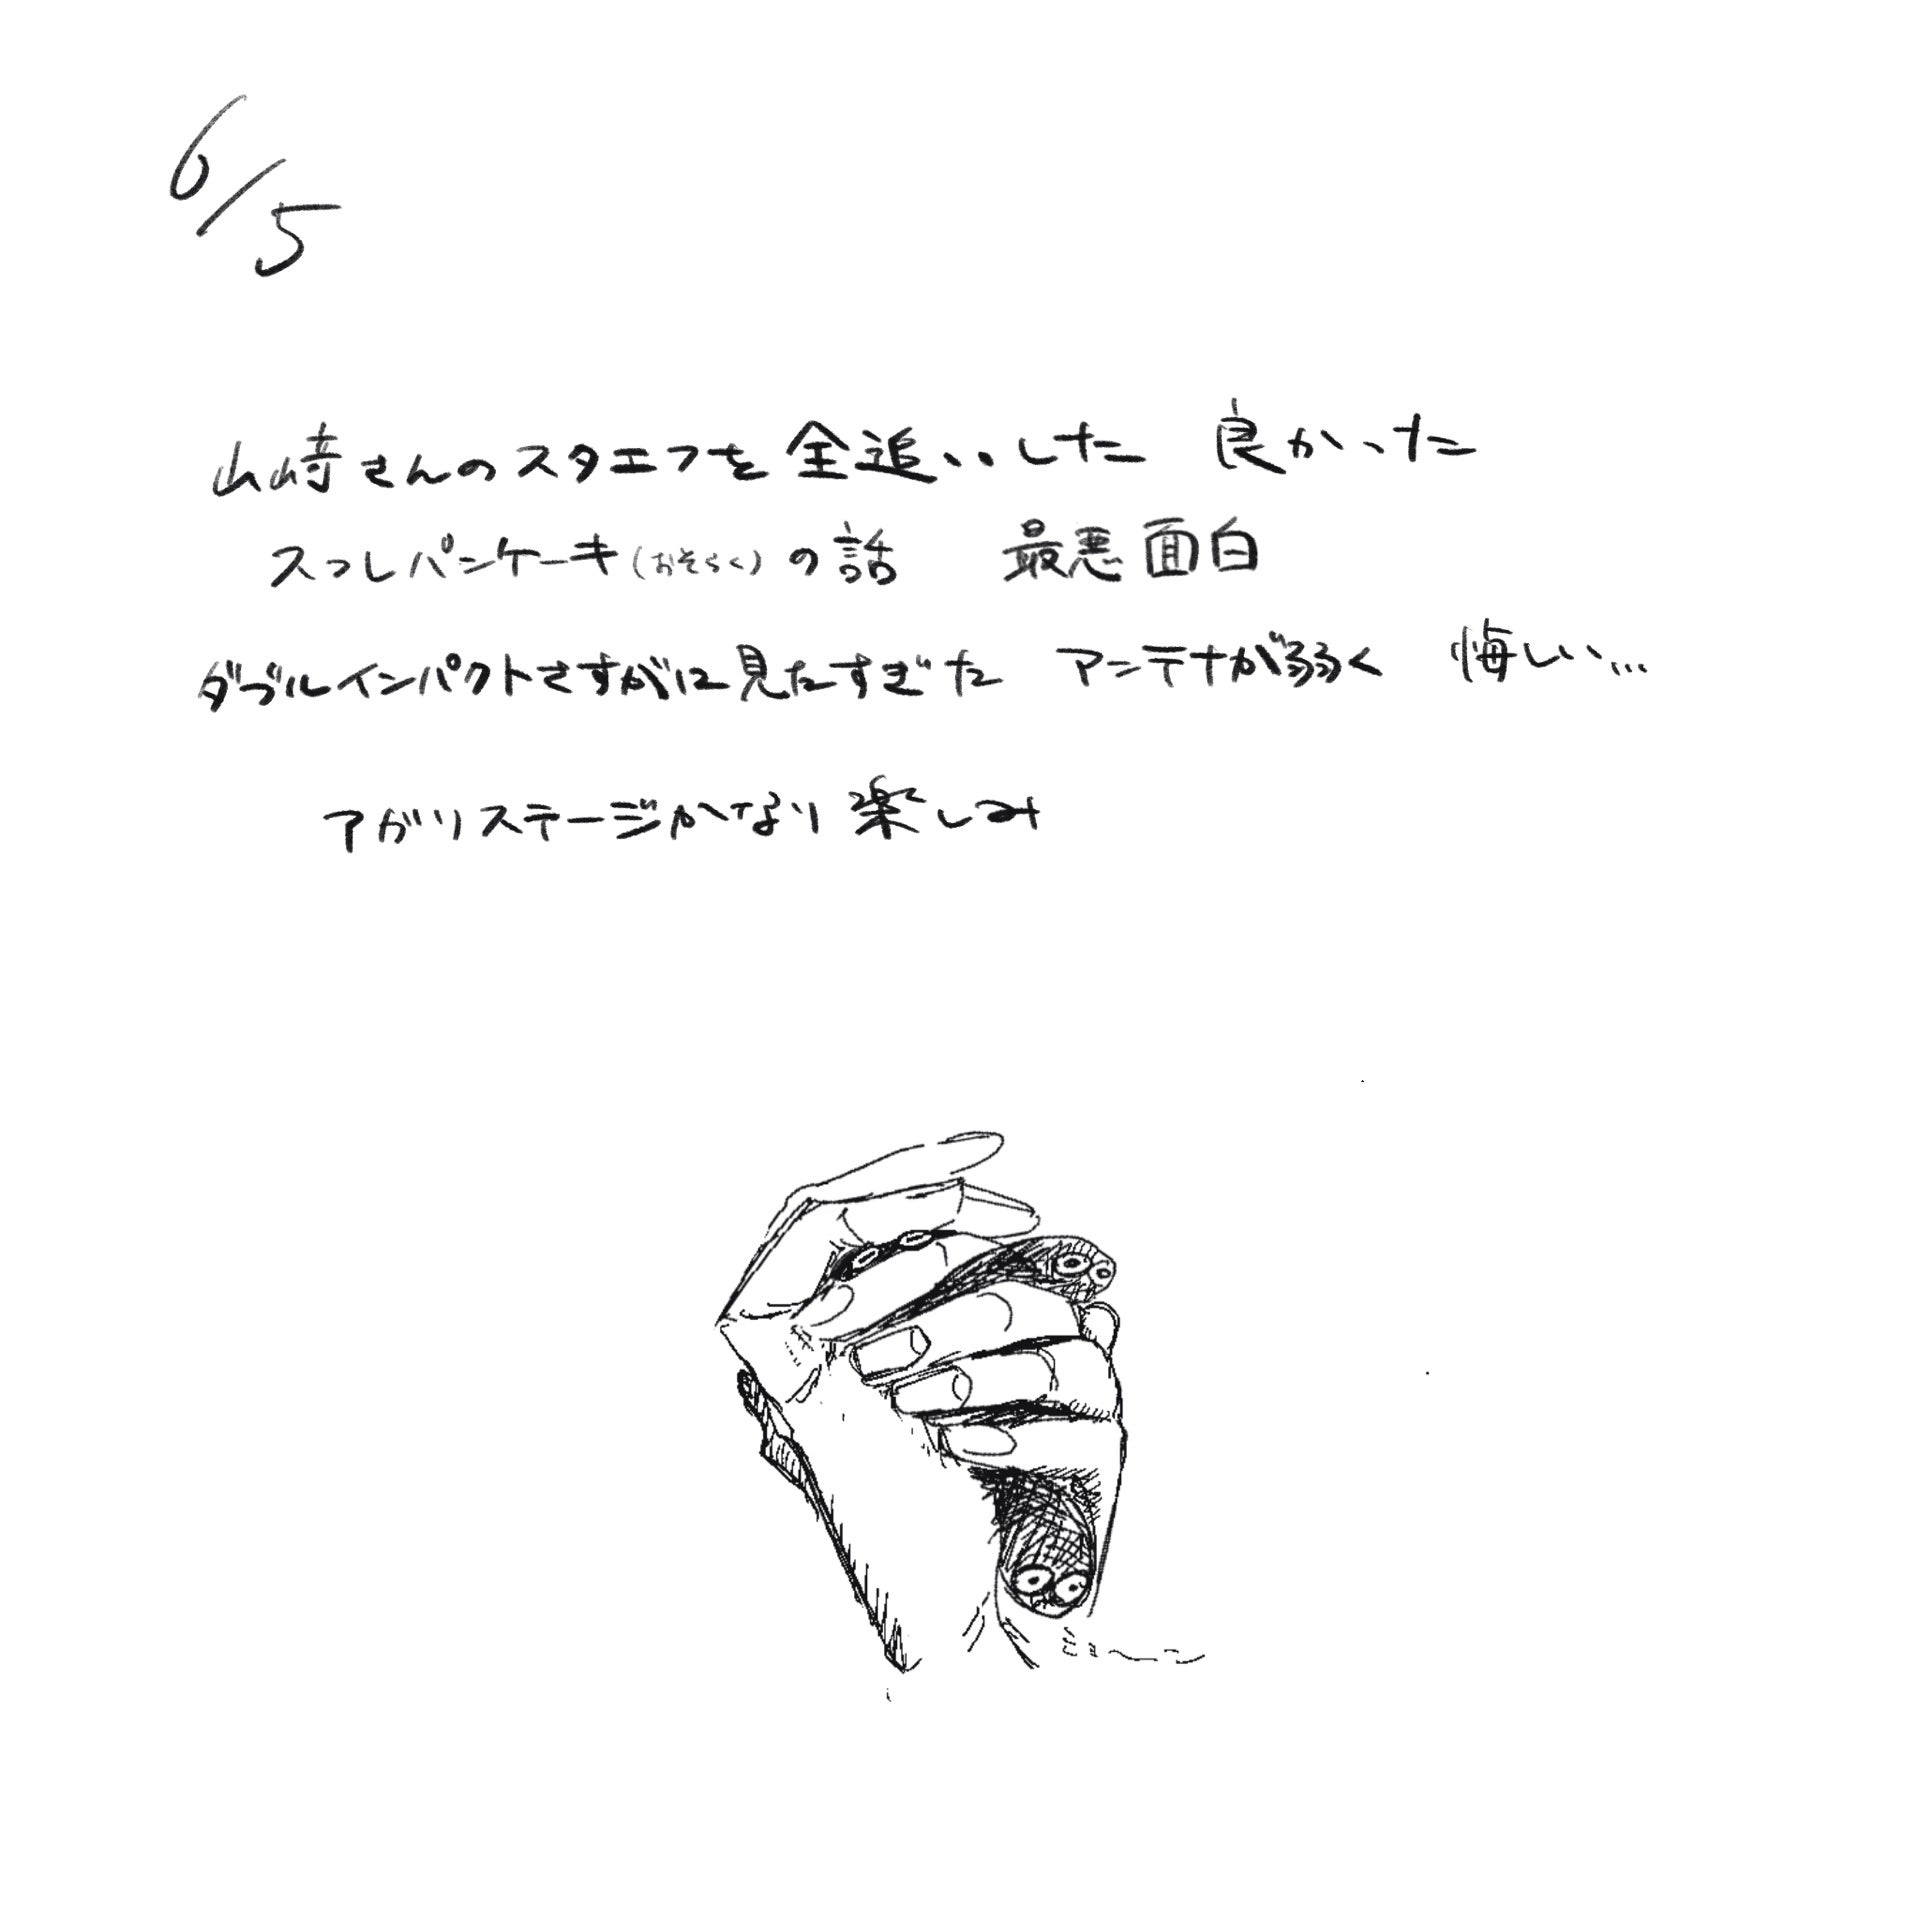 6/5
山崎さんのスタエフを全追いした 良かった
スフレパンケーキ(おそらく)の話 最悪面白
ダブルインパクトさすがに見たすぎた アンテナが弱く 悔しい…
アガリステージかなり楽しみ
ミョ〜ン